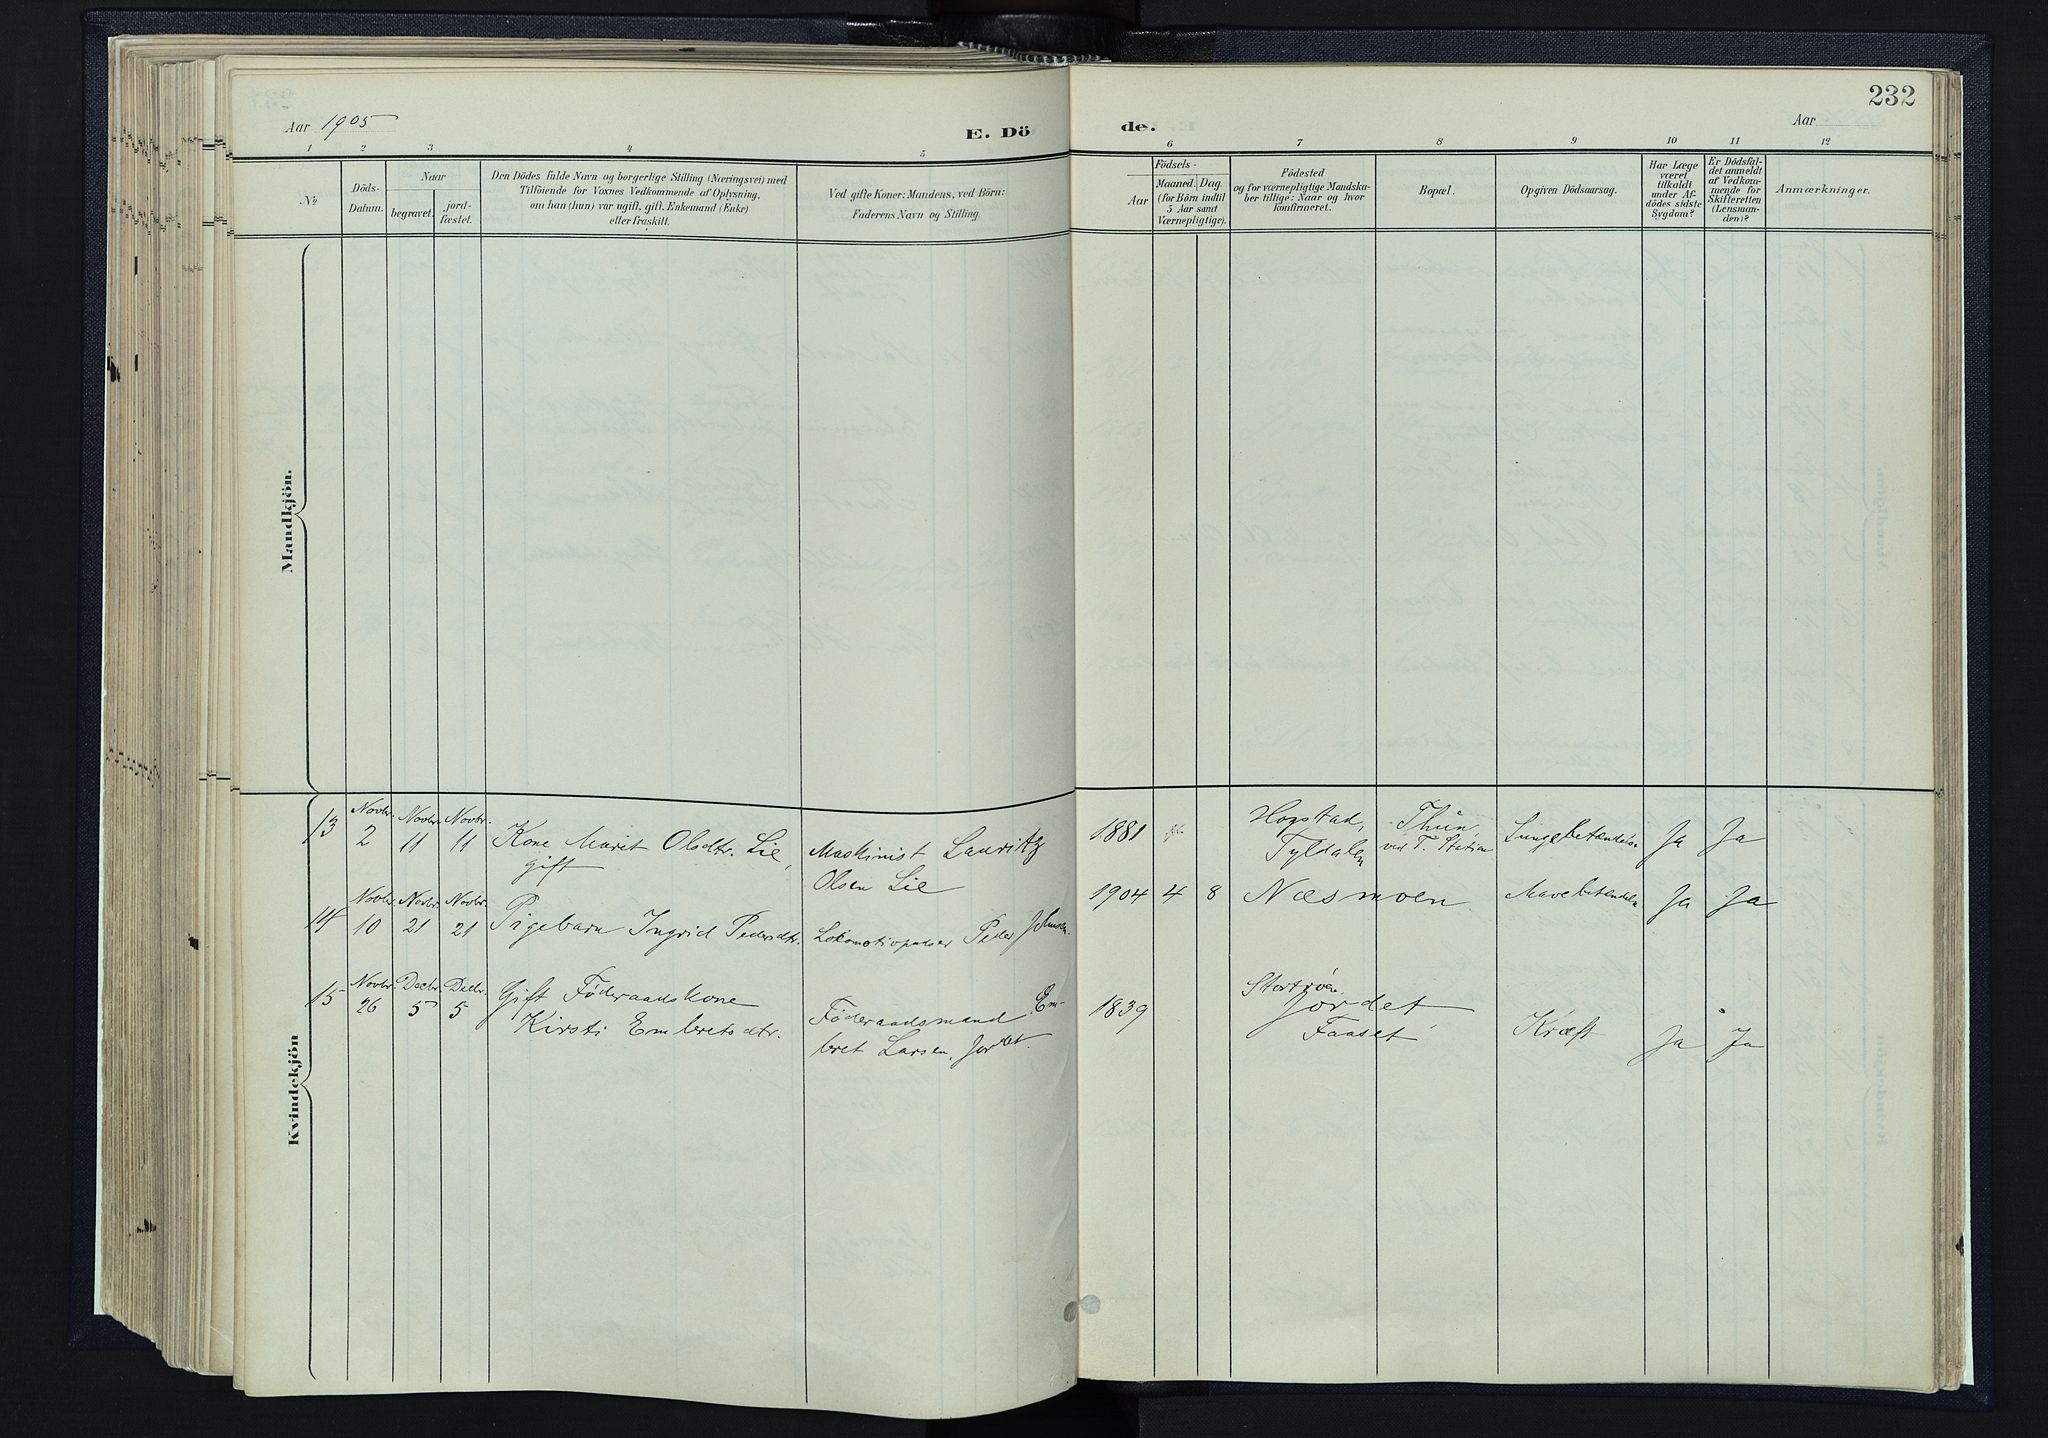 232
Aar 1905
E. Dö
de.
Aar
1 2 3 4 5 6 7 8 9 10 11 12
№
Döds-
Datum.
Naar
begravet.
jord-
fæstet.
Den Dödes fulde Navn og borgerlige Stilling (Næringsvei) med
Tilföiende for Voxnes Vedkommende af Oplysning,
om han (hun) var ugift, gift, Enkemand (Enke)
eller fraskilt.
Ved gifte Koner: Mandens, ved Börn:
Faderens Navn og Stilling.
Födsels-
Aar
Maaned. Dag.
(for Börn indtil
5 Aar samt
Værnepligtige).
Födested
og for værnepligtige Mandska-
ber tillige: Naar og hvor
konfirmeret.
Bopæl.
Opgiven Dödsaarsag.
Har Læge
været
tilkaldt
under Af-
dödes sidste
Sygdom?
Er Dödsfal-
det anmeldt
af Vedkom-
mende for
Skifteretten
(Lensman-
den)?
Anmærkninger.
Mandkjön.
Kvindekjön
13
Novbr.
2
Novbr.
11
Novbr.
11
Kone Marit Olsdtr. Lie,
gift
Maskinist Lauritz
Olsen Lie
1881
Hogstad,
Tyldalen
Thun,
ved T. Station
Lungebetændelse
Ja
Ja
14
Novbr.
10
Novbr.
21
Novbr.
21
Pigebarn Ingrid Pedersdtr.
Lokomotivpudser Peder Johnsen.
1904 4 8
Næsmoen
Mavebetændelse
Ja
Ja
15
Novbr.
26
Decbr.
5
Decbr.
5
Gift Föderaadskone
Kirsti Embretsdtr.
Föderaadsmand Em-
bret Larsen, Jordet.
1839
Stortrøen
Jordet
Faaset
Kræft
Ja
Ja